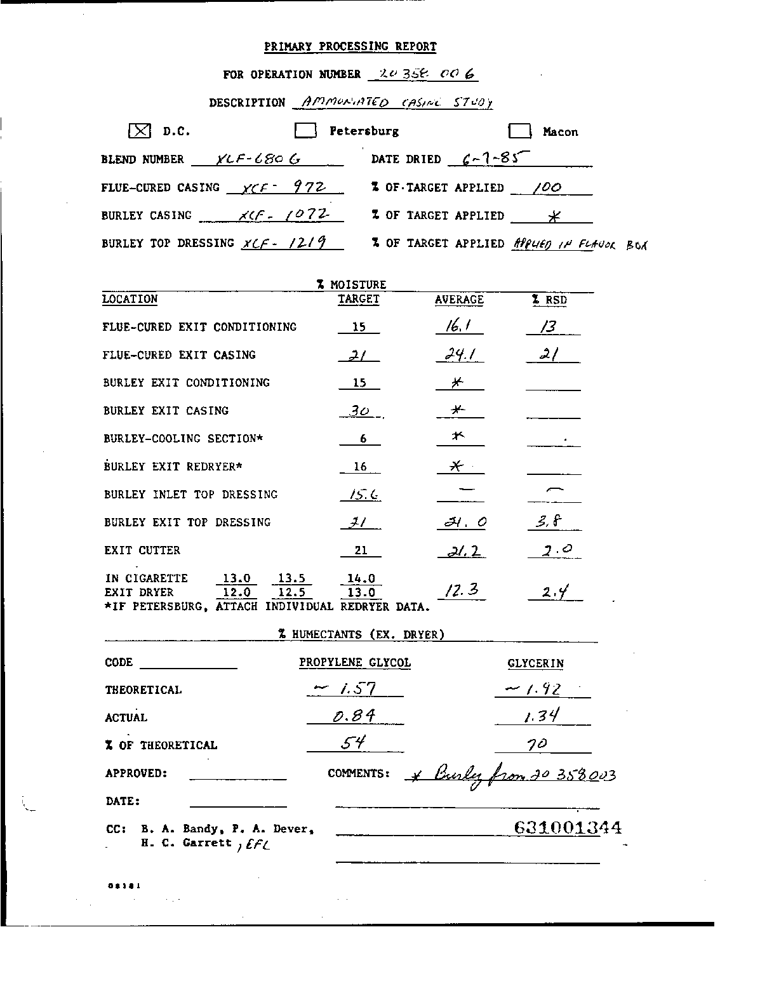 PRIMARY PROCESSING REPORT
FOR OPERATION NUMBER 20358 006
DESCRIPTION AMMONIATED CASING STUDY
☒ D.C. ☐ Petersburg ☐ Macon
BLEND NUMBER XLF-6806 DATE DRIED 6-7-85
FLUE-CURED CASING XCF- 972 % OF TARGET APPLIED 100
BURLEY CASING XCF- 1072 % OF TARGET APPLIED *
BURLEY TOP DRESSING XCF- 1219 % OF TARGET APPLIED APPLIED IN FLAVOR BOX
% MOISTURE
LOCATION TARGET AVERAGE % RSD
FLUE-CURED EXIT CONDITIONING 15 16.1 13
FLUE-CURED EXIT CASING 21 24.1 21
BURLEY EXIT CONDITIONING 15 *
BURLEY EXIT CASING 30 *
BURLEY-COOLING SECTION* 6 *
BURLEY EXIT REDRYER* 16 *
BURLEY INLET TOP DRESSING 15.6 — —
BURLEY EXIT TOP DRESSING 21 21.0 3.8
EXIT CUTTER 21 21.2 2.0
IN CIGARETTE 13.0 13.5 14.0
EXIT DRYER 12.0 12.5 13.0 12.3 2.4
*IF PETERSBURG, ATTACH INDIVIDUAL REDRYER DATA.
% HUMECTANTS (EX. DRYER)
CODE PROPYLENE GLYCOL GLYCERIN
THEORETICAL ~ 1.57 ~ 1.92
ACTUAL 0.84 1.34
% OF THEORETICAL 54 70
APPROVED: COMMENTS: * Burley from 20 358003
DATE:
CC: B. A. Bandy, P. A. Dever,
H. C. Garrett, EFL
631001344